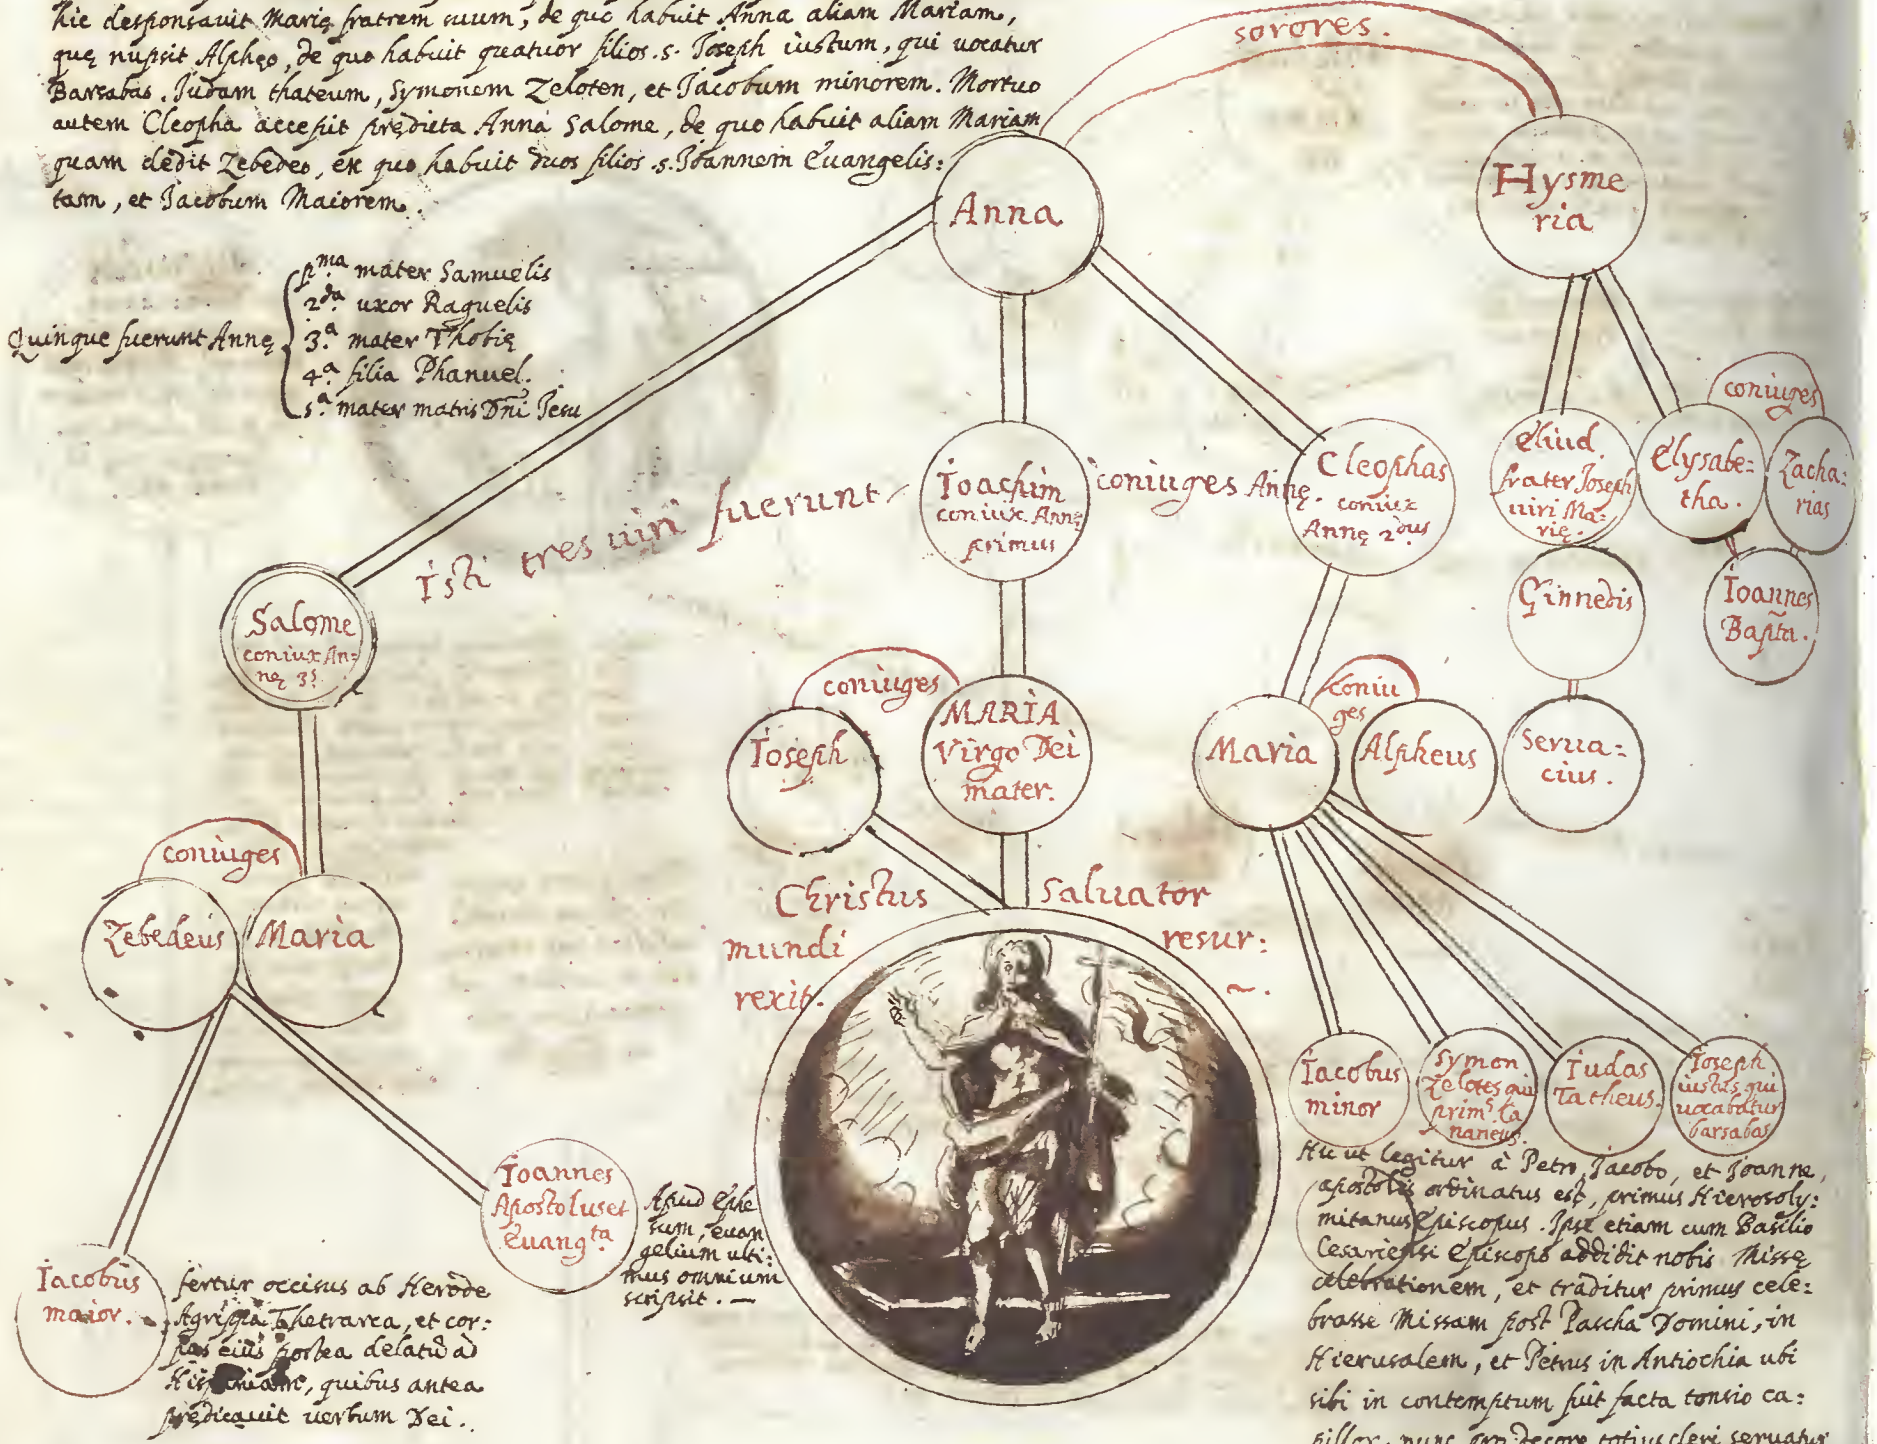 hic desponsauit Marię fratrem suum, de quo habuit Anna aliam Mariam,
quę nupsit Alphęo, de quo habuit quatuor filios .s. Joseph iustum, qui uocatur
Barsabas. Judam thateum, Symonem Zeloten, et Jacobum minorem. Mortuo
autem Cleopha accepit prędicta Anna Salome, de quo habuit aliam Mariam
quam dedit Zebedeo, ex quo habuit duos filios .s. Joannem Euangelis:
tam, et Jacobum Maiorem.
sorores.
Anna
Hysme
ria
Quinque fuerunt Annę
pma mater Samuelis
2da uxor Raguelis
3a mater Thobię
4a filia Phanuel.
5a mater matris Dñi Jesu
Isti tres uiri fuerunt coniuges Annę.
Ioachim
coniux Annę
primus
Cleophas
coniux
Annę 2dus
Eliud.
frater Joseph
uiri Ma:
rię.
Elysabe:
tha.
coniuges
Zacha:
rias
Salome
coniux An:
nę 3s
Ginnedis
Ioannes
Bapta.
coniuges
Ioseph
MARIA
Virgo Dei
mater.
Maria
coniu
ges
Alpheus
Serua:
cius.
coniuges
Zebedeus
Maria
Christus Saluator
mundi resur:
rexit.
Iacobus
minor
Symon
Zelotes qui
prims Ca
naneus.
Iudas
Tatheus.
Ioseph
iustus, qui
uocabatur
barsabas
Ioannes
Apostolus et
Euangta
Apud Ephe
sum, euan
gelium ulti:
mus omnium
scripsit.
Iacobus
maior.
fertur occisus ab Herode
Agrippa Thetrarca, et cor:
pus eius postea delatū ad
Hispaniam, quibus antea
prędicauit uerbum Dei.
Hic ut legitur à Petro, Jacobo, et Joanne,
apostolis ordinatus est, primus Hierosoly:
mitanus Episcopus. Ipse etiam cum Basilio
Cesariensi Episcopo addidit nobis Missę
celebrationem, et traditur primus cele:
brasse Missam post Pascha Domini, in
Hierusalem, et Petrus in Antiochia ubi
sibi in contemptum fuit facta tonsio ca:
pillor, nunc pro decore totius cleri seruatur